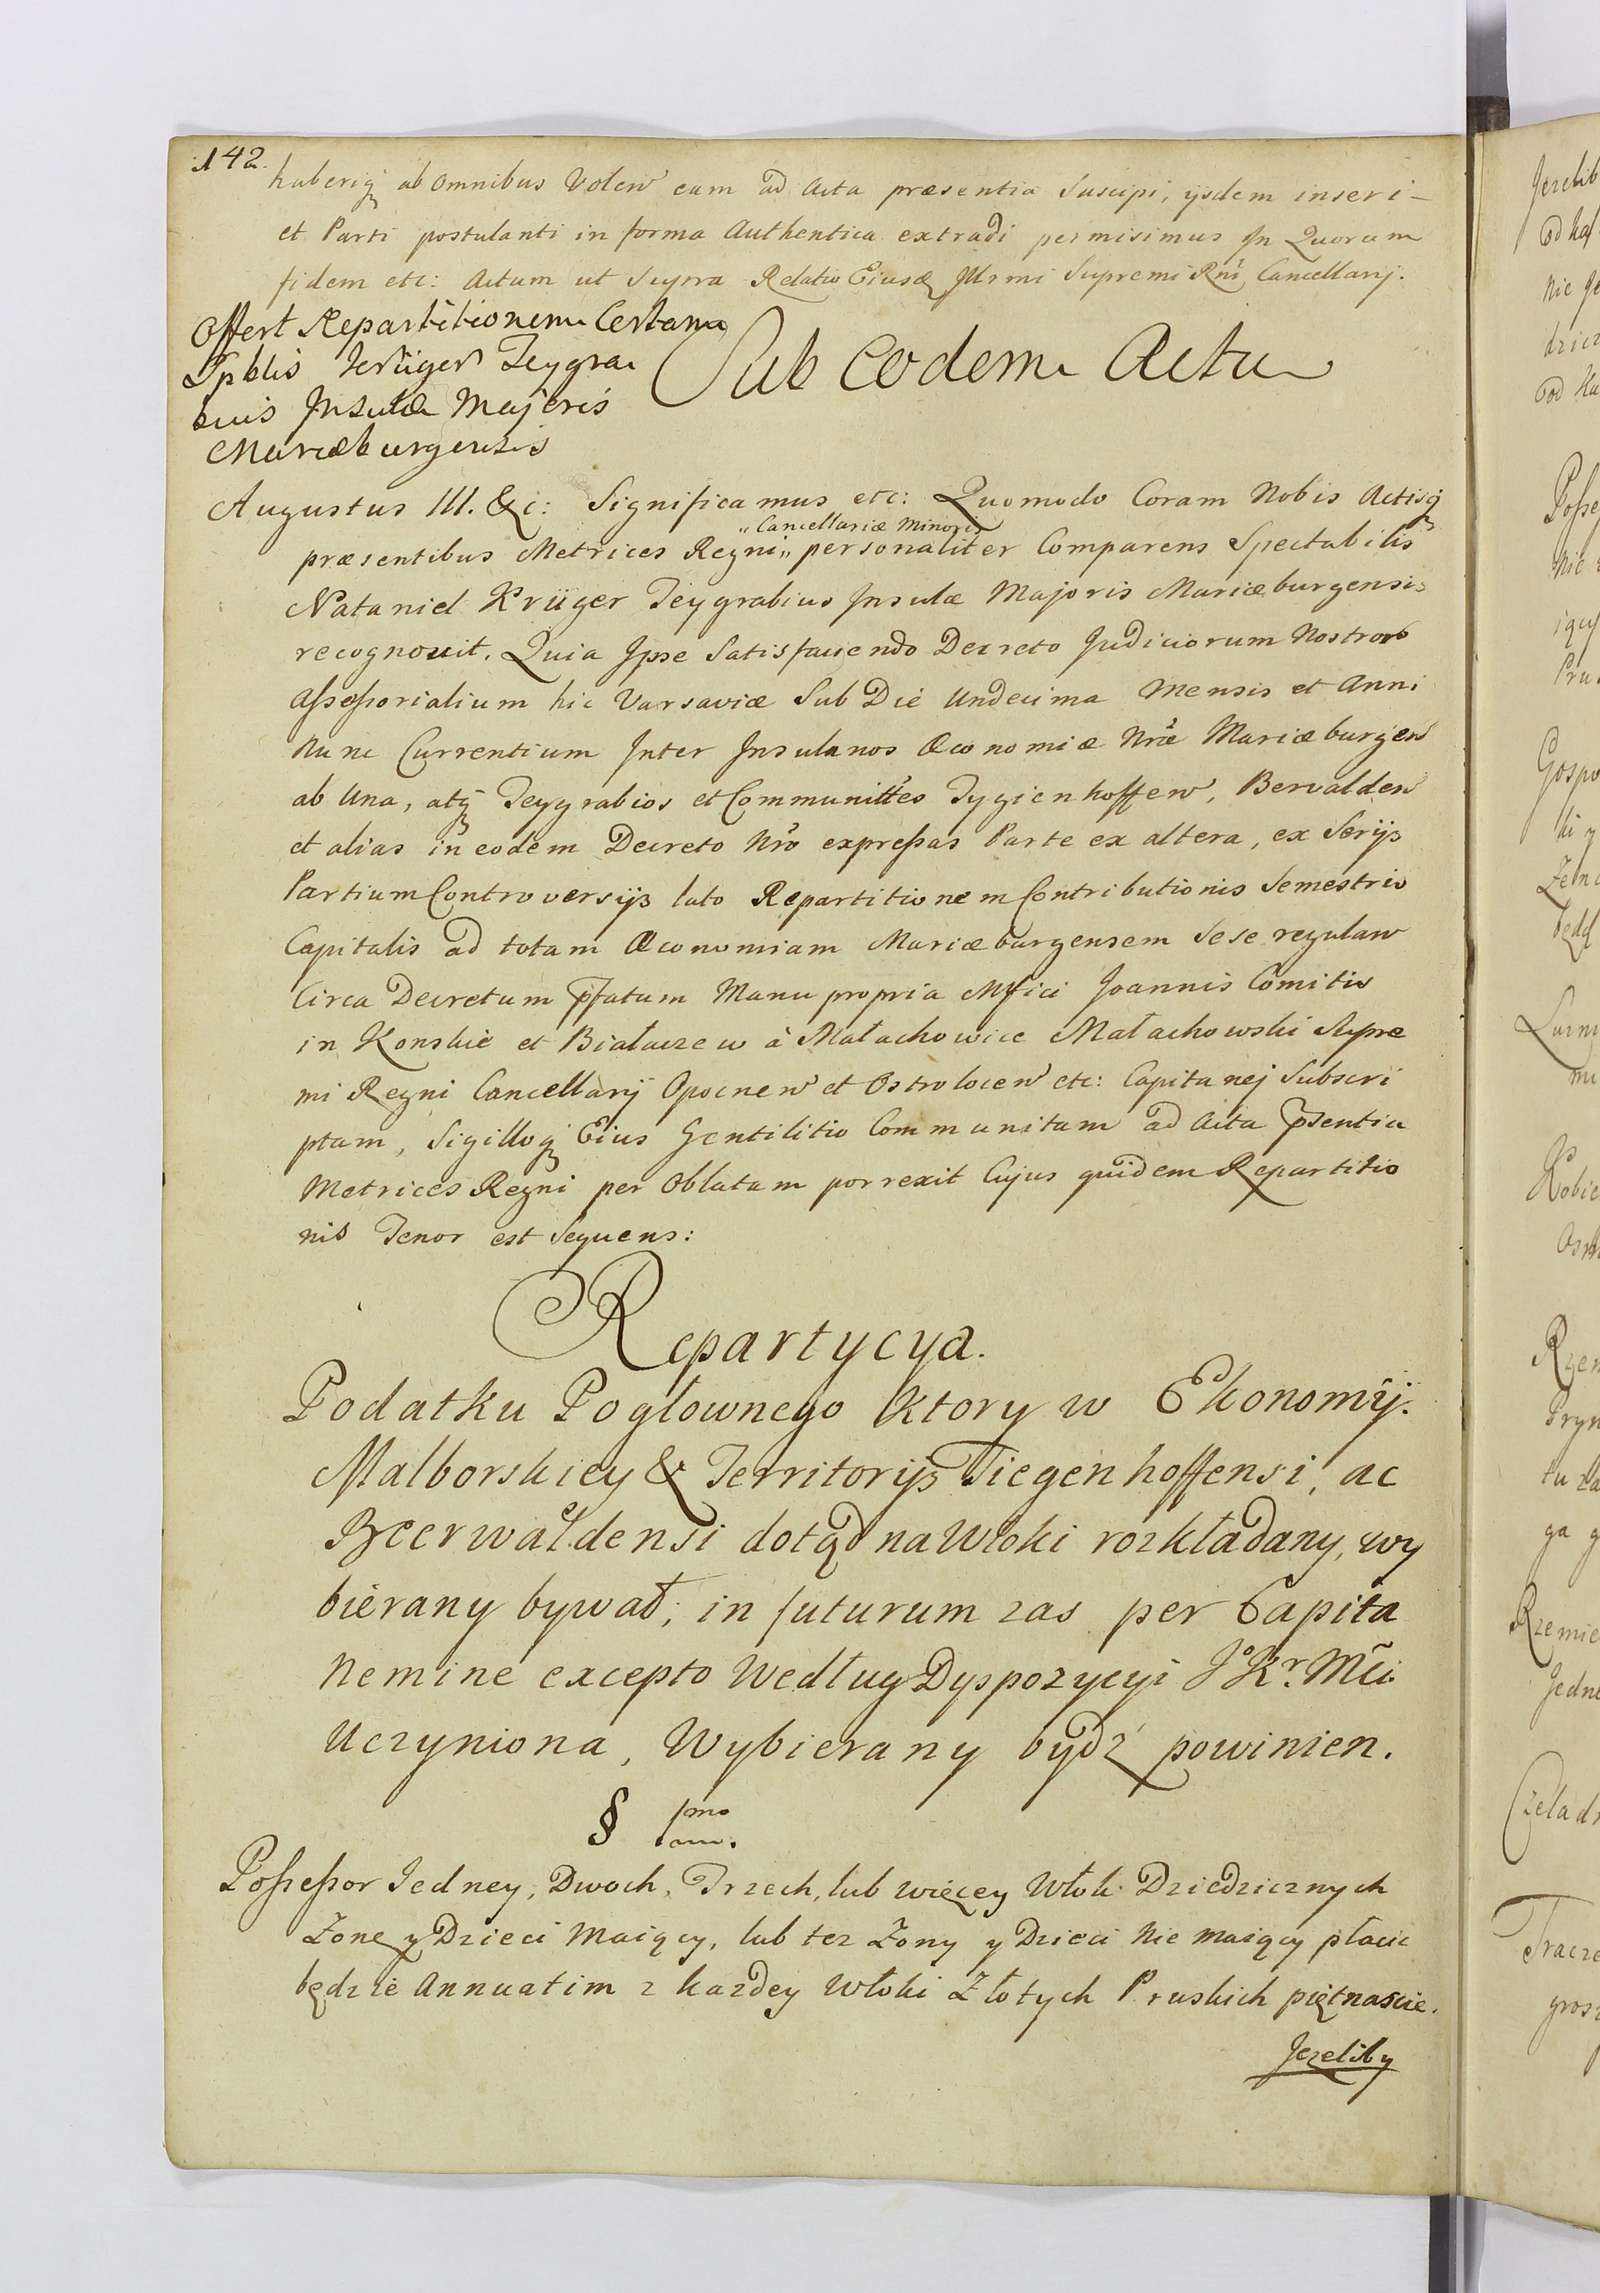 142.
haberiq; ab omnibus Volen eam ad Acta præsentia Suscipi, ijsdem inseri-
et Parti postulanti in forma Authentica extradi permisimus In Quorum
fidem etc: Actum ut Supra Relatio Eiusd Illrmi Supremi Rni Cancellarij.
Offert Repartitionem Certam
Spblis Krüger Teygra
bius Insulæ Majoris
Mariæburgensis
Sub Eodem Actu
Augustus III. &c: Significamus etc: Quomodo Coram Nobis Actisq;
„Cancellariæ Minoris
præsentibus Metrices Regni„ personaliter Comparens Spectabilis
Nataniel Krüger Teygrabius Insulæ Majoris Mariæburgensis
recognovit. Quia Ipse Satisfaciendo Decreto Judiciorum Nostror
Assessorialium hic Varsaviæ Sub Die Undecima Mensis et Anni
Nunc Currentium Inter Insulanos Œconomiæ Nræ Mariæburgen
ab Una, atq; Teygrabios et Communittes Tygienhoffen, Bervalden
et alias in eodem Decreto Nro expressas Parte ex altera, ex Serijs
Partium Controversijs lato Repartitionem Contributionis Semestris
Capitalis ad totam Œconomiam Mariæburgensem Sese regulan
Circa Decretum pfatum Manu propria Mfici Joannis Comitis
in Konskie et Białaczew à Małachowice Małachowski Supre
mi Regni Cancellarij Opocnen et Ostrolocen etc: Capitanej Subscri
ptam, Sigilloq; Eius Gentilitio Communitam ad Acta psentia
Metrices Regni per Oblatam porrexit Cujus quidem Repartitio
nis Tenor est Sequens:
Repartycya.
Podatku Pogłownego Ktory w Ekonomij.
Malborskiey & Territorijs Tiegenhoffensi, ac
Beerwaldensi dotąd na Włoki rozkładany, wy
bierany bywał; in futurum zas per Capita
Nemine excepto Według Dyspozycyi J Kr. Mci
Uczyniona, Wybierany bydź powinien.
§ 1mo
Possessor Jedney, Dwoch, Trzech, lub więcey Włok Dziedzicznych
Zonę y Dzieci Maiący, lub tez Zony y Dzieci Nie maiący płacic
będzie Annuatim z kazdey Włoki Złotych Pruskich piętnascie.
Jezeliby